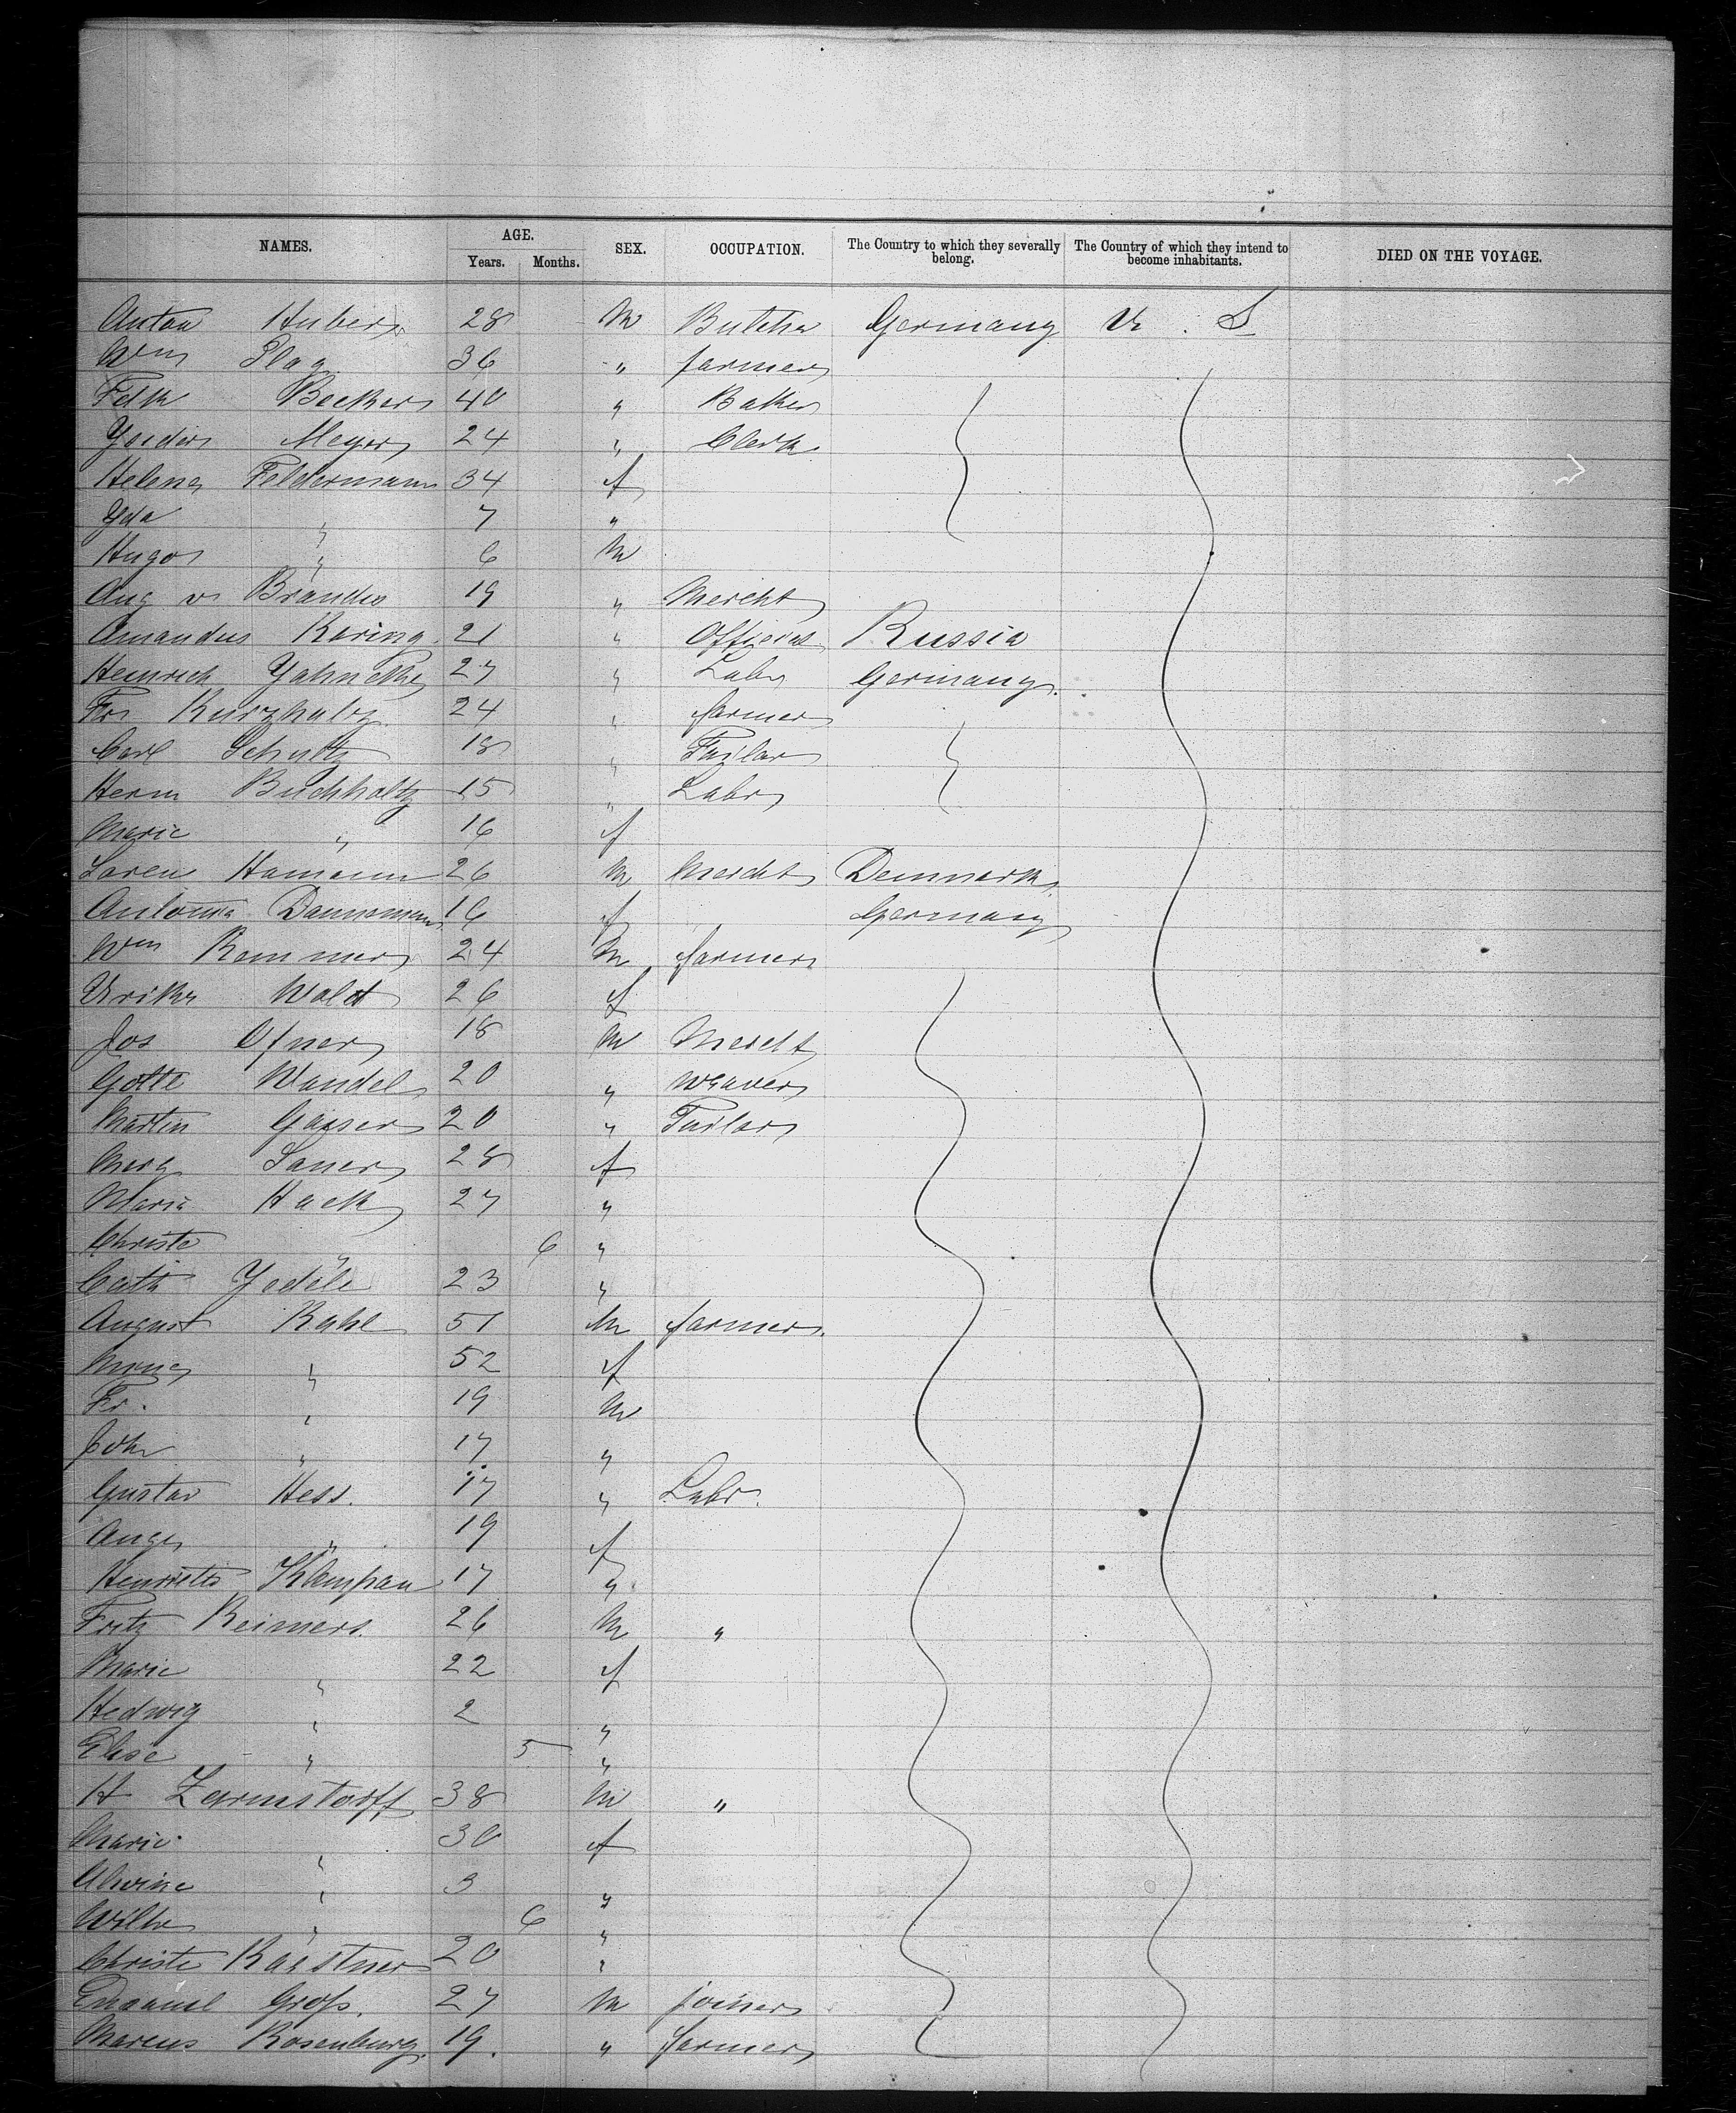 NAMES. AGE. Years. Months. SEX. OCCUPATION. The Country to which they severally belong. The Country of which they intend to become inhabitants. DIED ON THE VOYAGE.
Anton Huber 28 M Butcher Germany U. S
Wm Plag 36 " farmer
Felk Becker 40 " Baker
Meyer 24 " Clerk
Helena Feldermann 34 f
Yda " 7 "
Hugo " 6 M
Aug v Brandis 19 " Mercht
Amandus Karing 21 " Officer Russia
Heinrich Yahncke 27 " Labr Germany
Fr Kurzhals 24 " farmer
Carl Schultz 18 " Tailor
Herm Buchholtz 15 " Labr
Marie " 16 f
Soren Hamann 26 M Mercht Denmark
Antonia 16 f Germany
Wm Remmer 24 M farmer
Ulrike Wold 26 f
Jos Ofner 18 M Mercht
Gotte Wandel 20 " Weaver
Martin Gaiser 20 " Tailor
Marg Sauer 28 f
Maria Hack 27 "
Christe " 6 "
Cath Yedele 23 "
August Kahl 51 M farmer
52 f
Fr. " 19 M
Joh " 17 "
Gustav Hess. 17 " Labr.
Auge " 19 f
Henriette Klempau 17 "
Fritz Reimers. 26 M "
Marie " 22 f
Hedwig " 2 "
Elise " 5 "
H Zarmstorff 38 M "
Marie " 30 f
Alwine " 3 "
Wilhe " 6 "
Christe Kaestner 20 "
Emanuel Groß. 27 M joiner
Marcus Rosenburg. 19. " farmer